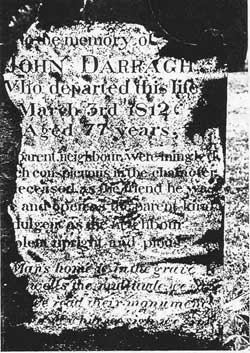 to the memory of
JOHN DARRAGH
Who departed this life
March 3rd 1812
Aged 77 years,
parent, neighbour, were mingled,
ch conspicuous in the character
deceased, as the friend he was
and open as the parent kind
dulgent as the neighbour
olent upright and pious
Man's home is in the grave
dwells the multitude we
we read their monuments